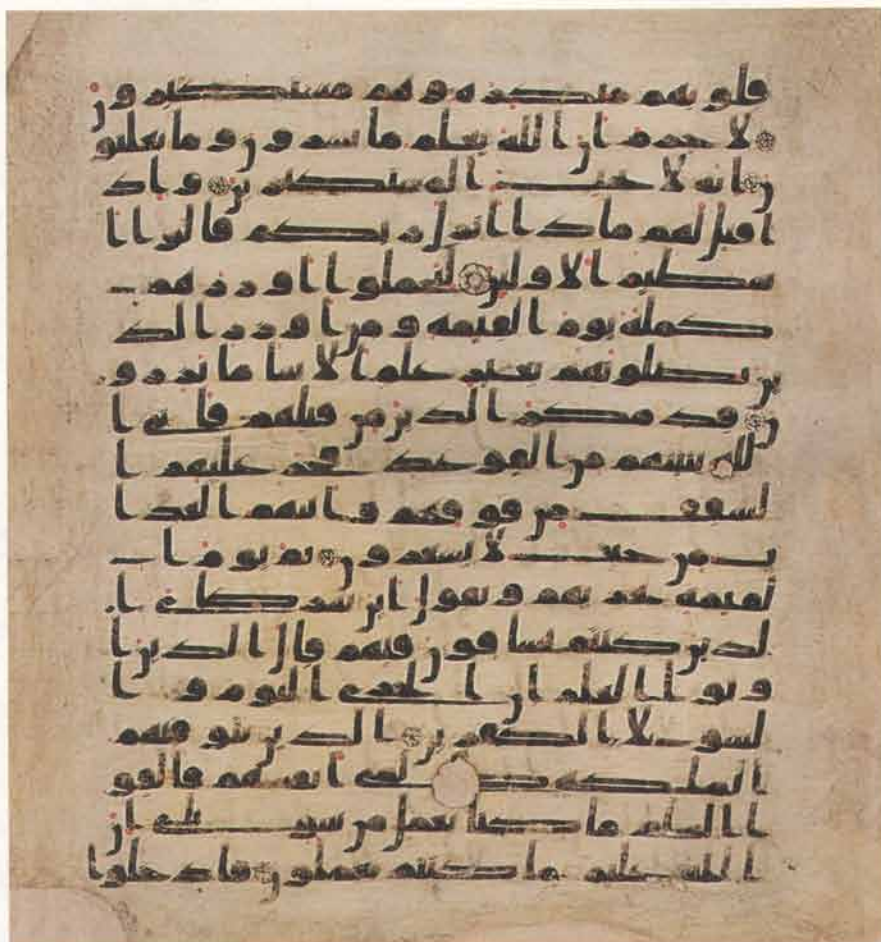 قلوبهم منكرة وهم مستكبرون
لا جرم ان الله يعلم ما يسرون وما يعلنو
ن انه لا يحب المستكبرين واذ
ا قيل لهم ماذا انزل ربكم قالوا ا
سطير الاولين ليحملوا اوزرهم
كملة يوم القيمة ومن اوزر الذ
ين يضلونهم بغير علم الا سا ما يزرو
ن قد مكر الذين من قبلهم فاتى ا
لله بنينهم من القوعد فخر عليهم ا
لسقف من فوقهم واتيهم العذا
ب من حيث لا يشعرون ثم يوم ا
لقيمة يخزيهم ويقول اين شركاى ا
لذين كنتم تشاقون فيهم قال الذين ا
وتوا العلم ان الخزى اليوم وا
لسو على الكفرين الذين تتوفيهم
الملئكة ظلمى انفسهم فالقو
ا السلم ما كنا نعمل من سو بلى ان
الله عليم بما كنتم تعملون فادخلوا